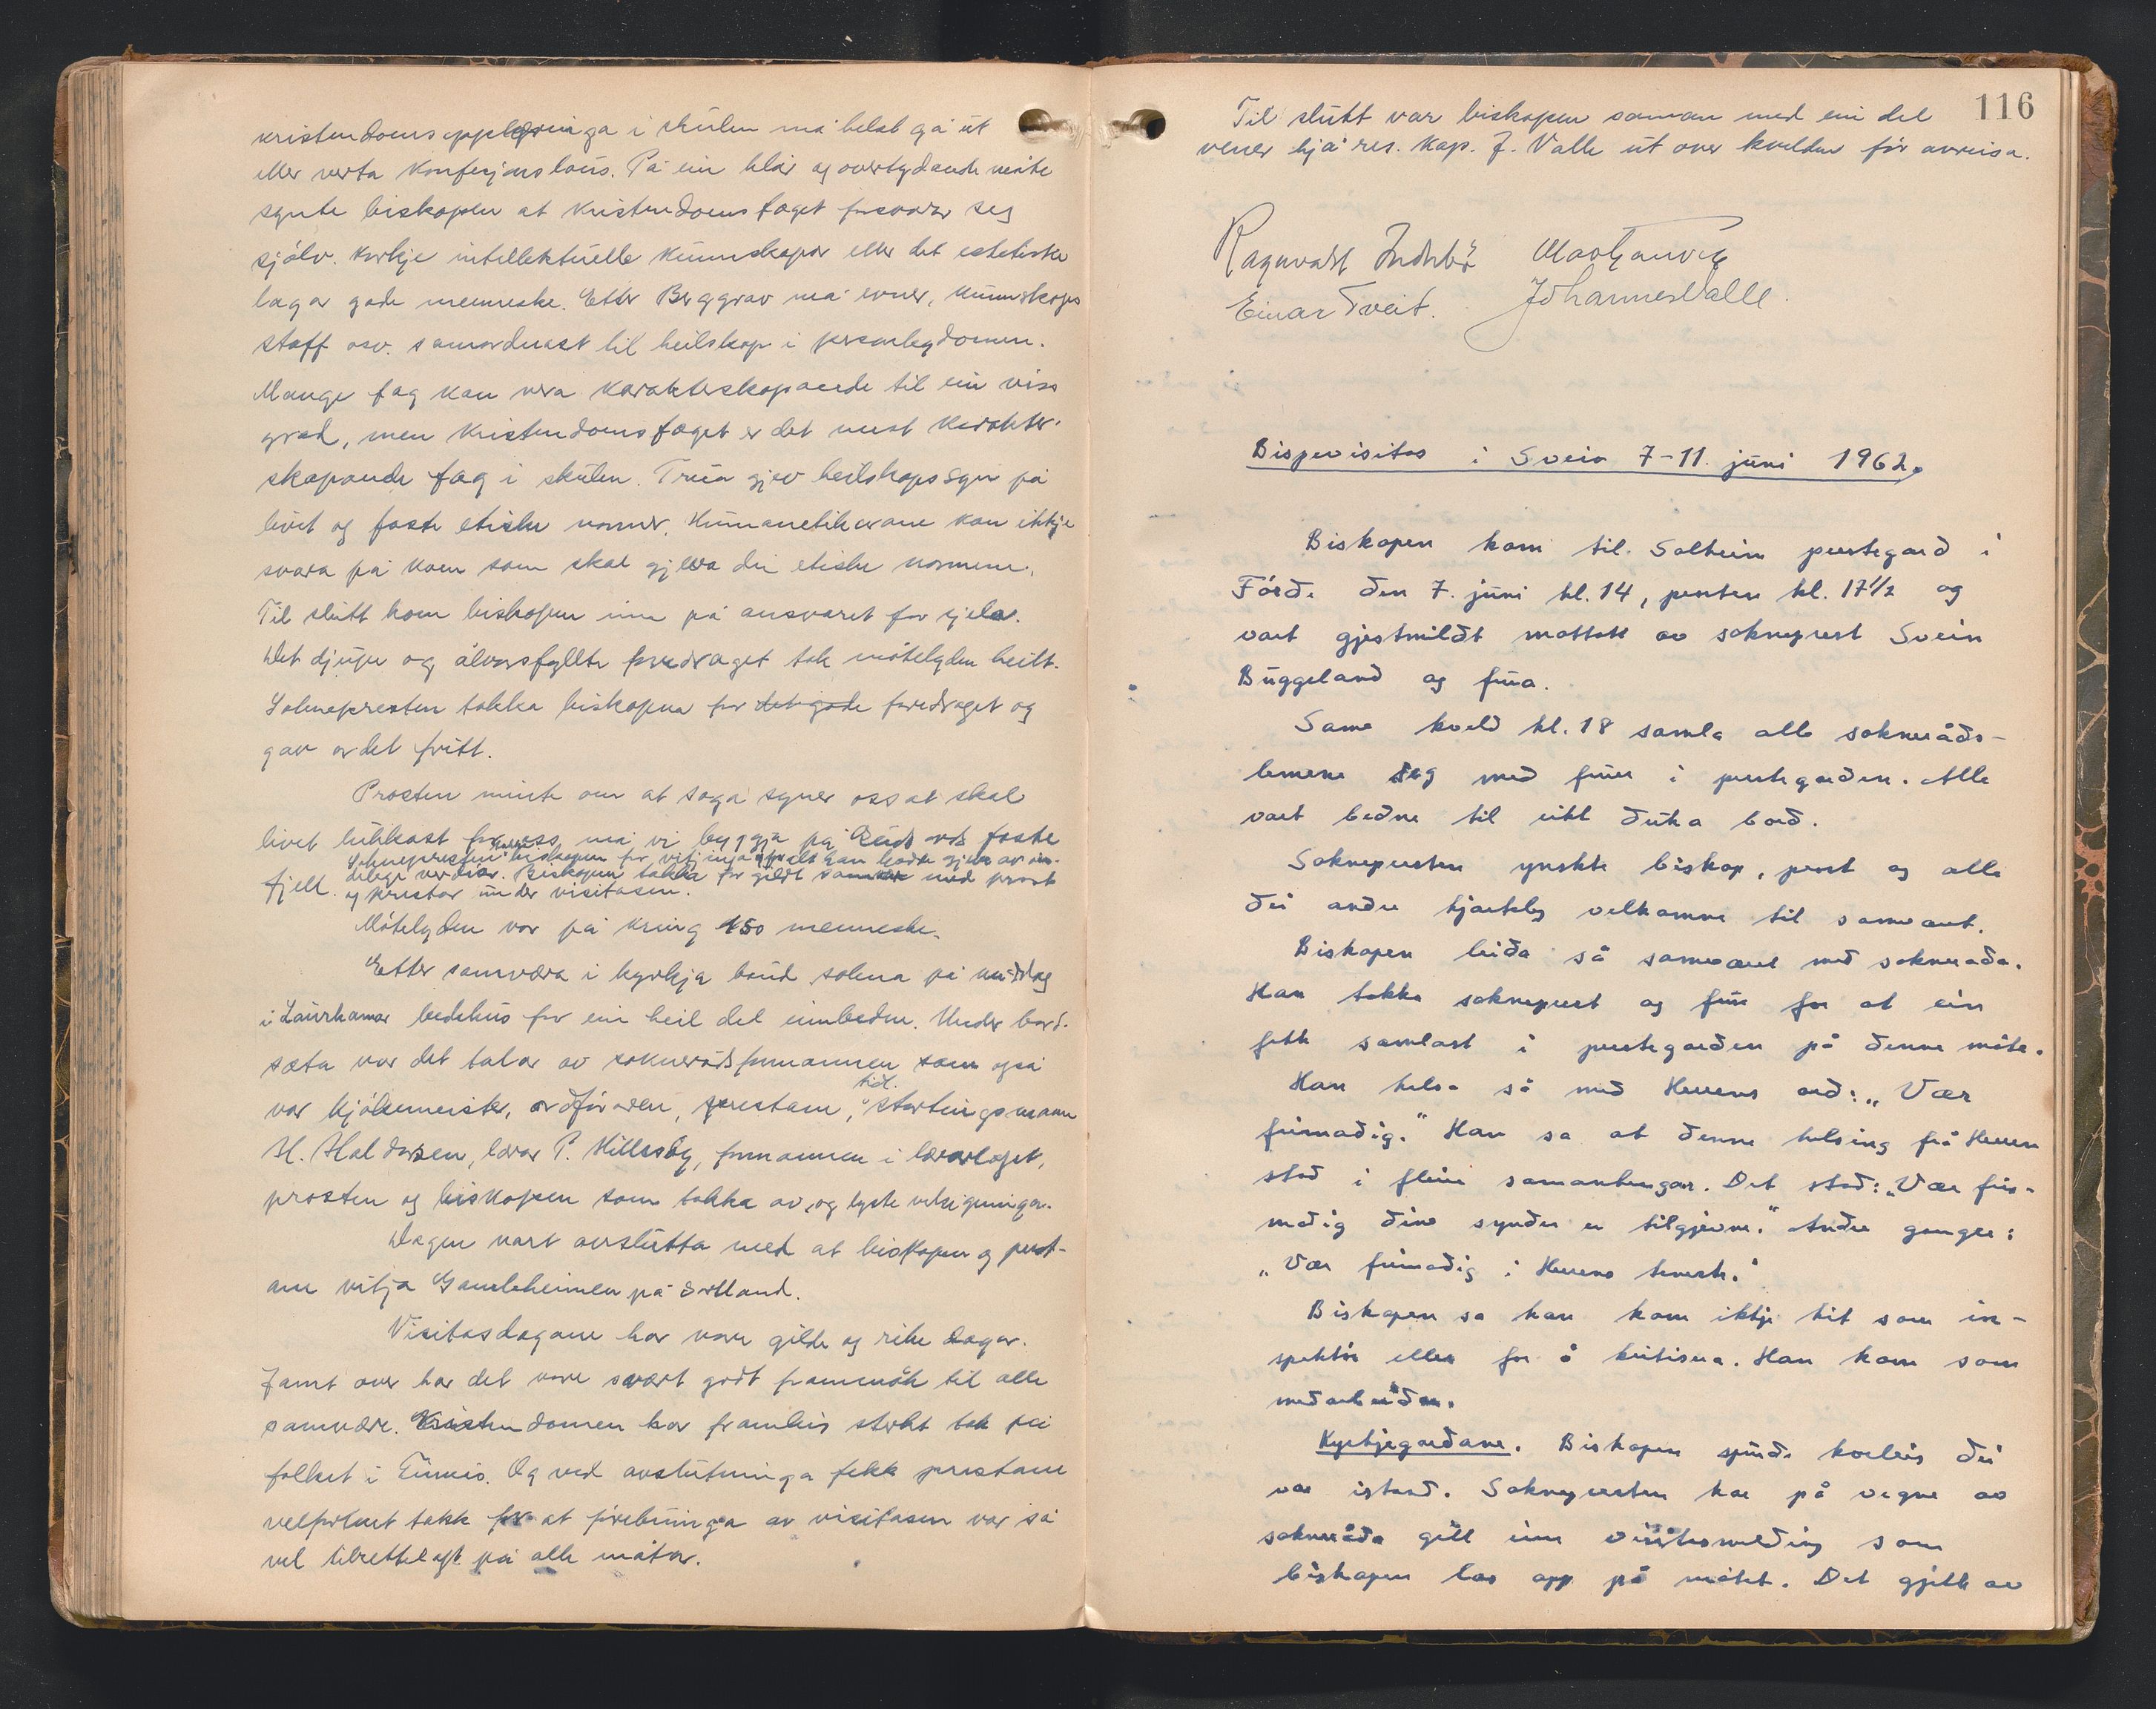 kristendomsopplæringa i skulen må helst gå ut
eller verta konfesjonslaus. På ein klår og overtydande måte
synte biskopen at kristendomsfaget forsvarar seg
sjølv. Korkje intellektuelle kunnskapar eller det estetiske
lagar gode menneske. Etter Berggrav må evner, kunnskaps
stoff osv. samordnast til heilskap i personlegdomen.
Mange fag kan vera karakterskapande til ein viss
grad, men kristendomsfaget er det mest karakter-
skapande fag i skulen. Trua gjev heilskapssyn på
livet og faste etiske normer. Humanetikarane kan ikkje
svara på kven som skal gjeva dei etiske normene.
Til slutt kom biskopen inn på ansvaret for sjela.
Det djupe og alvorsfyllte foredraget tok møtelyden heilt.
Soknepresten takka biskopen for det gode foredraget og
gav ordet fritt.
Prosten minte om at soga syner oss at skal
livet lukkast for oss må vi byggja på Guds ords faste
fjell.
Soknepresten takka biskopen for vitjinga og for alt han hadde gjeve av ån-
delege verdiar. Biskopen takka for gildt samvær med prost
og prestar under visitasen.
Møtelyden var på kring 450 menneske.
Etter samværa i kyrkja baud sokna på middag
i Laurhamar bedehus for ein heil del innbedne. Under bord-
seta var det talar av sokneråds formannen som også
var kjøkemeister, ordføraren, prestane, tidl. stortingsmann
H. Haldorsen, lærar P. Hillesøy, formannen i lærarlaget,
prosten og biskopen som takka av, og lyste velsigninga.
Dagen vart avslutta med at biskopen og prest-
ane vitja Gamleheimen på Ortland.
Visitasdagane har vore gilde og rike dagar.
Jamt over har det vore svært godt frammøte til alle
samvære. Kristendomen har framleis sterkt tak på
folket i Finnås. Og ved avslutninga fekk prestane
velfortent takk for at førebuinga av visitasen var så
vel tilrettelagt på alle måtar.
116
Til slutt var biskopen saman med ein del
vener hjå res. kap. J. Valle ut over kvelden før avreisa.
Ragnvald Indrebø
Einar Tveit.
Johannes Valle.
Bispevisitas i Sveio 7-11. juni 1962.
Biskopen kom til Solheim prestegard i
Førde den 7. juni kl. 14, prosten kl. 17½ og
vart gjestmildt mottatt av sokneprest Svein
Buggeland og frua.
Same kveld kl. 18 samla alle sokneråds-
lemene seg med fruer i prestegarden. Alle
vart bedne til eitt duka bord.
Soknepresten ynskte biskop, prost og alle
dei andre hjarteleg velkomne til samværet.
Biskopen leida så samværet med sokneråda.
Han takka sokneprest og frue for at ein
fekk samlast i prestegarden på denne måte.
Han helsa så med Herrens ord: „Vær
frimodig." Han sa at denne helsing frå Herren
stod i fleire samanhengar. Det stod: „Vær fri-
modig dine synder er tilgjevne." Andre gonger:
„Vær frimodig i Herrens teneste."
Biskopen sa han kom ikkje hit som in-
spektør eller for å kritisera. Han kom som
medarbeidar.
Kyrkjegardane. Biskopen spurde korleis dei
var istand. Soknepresten har på vegne av
sokneråda gitt inn visitasmelding som
biskopen las opp på møtet. Det gjekk av